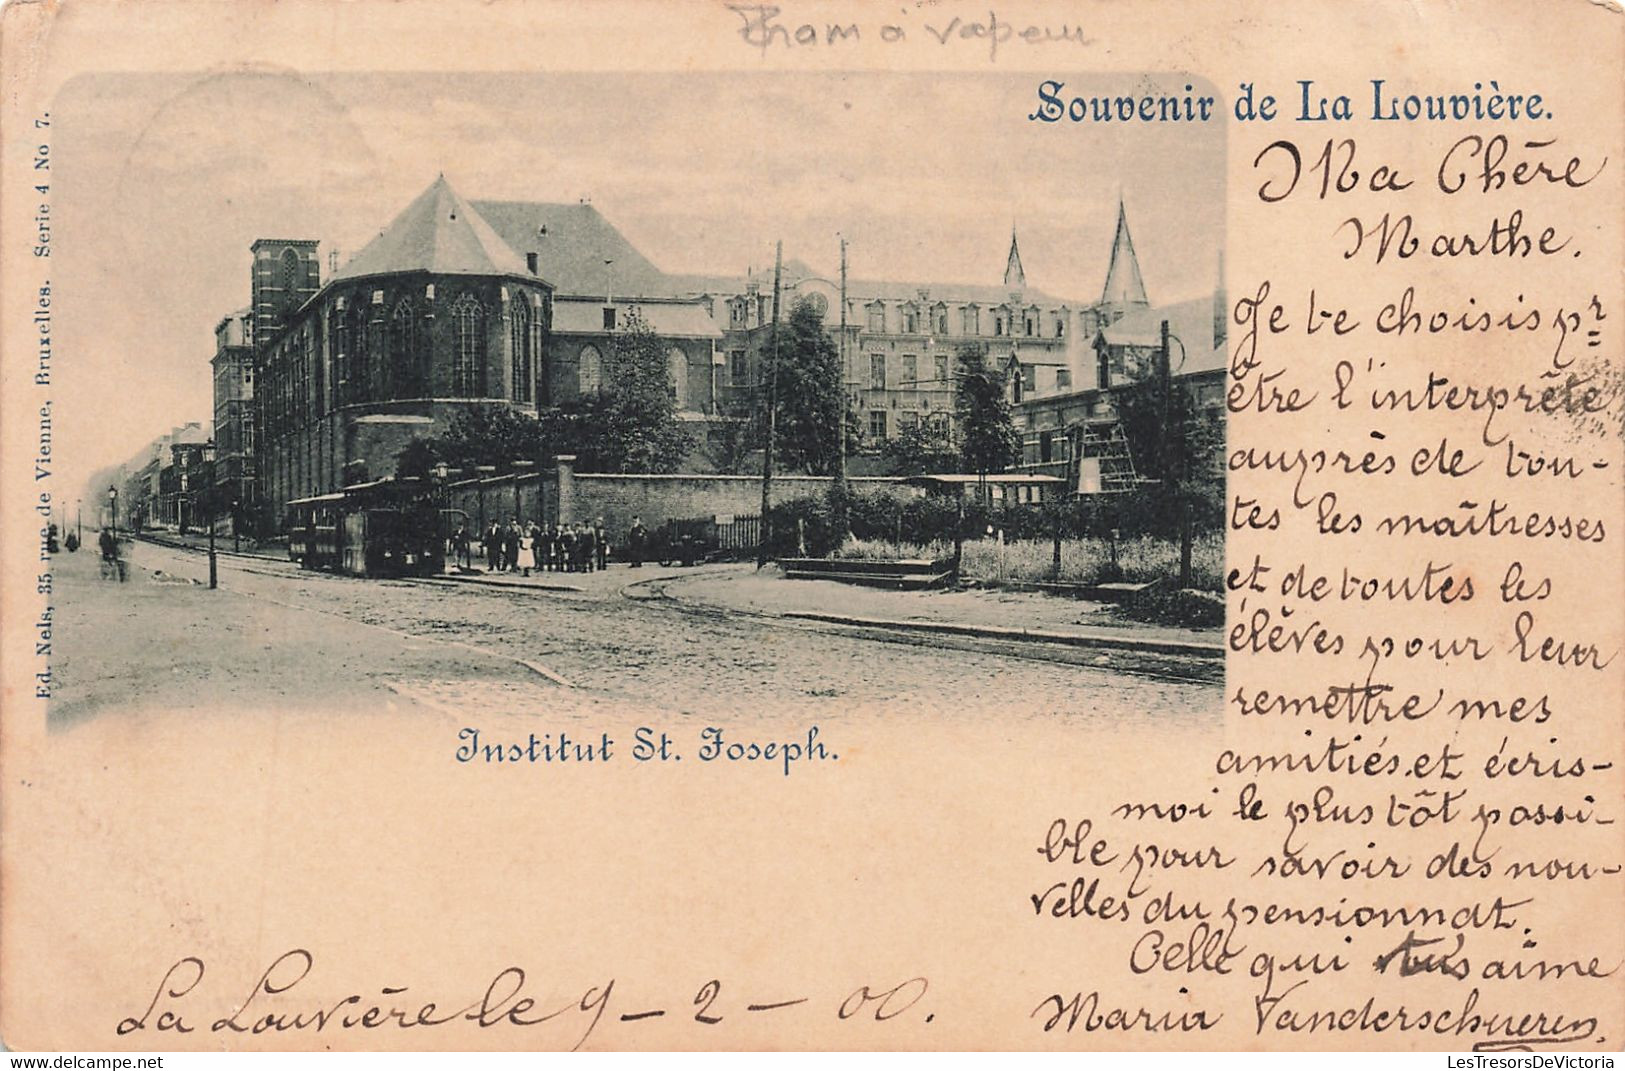 Tram à vapeur
Souvenir de La Louvière.
Ma Chère
Marthe.
Je te choisis pr
être l'interprête
auprès de tou-
tes les maîtresses
et de toutes les
élèves pour leur
remettre mes
amitiés et écris-
moi le plus tôt possi-
ble pour savoir des nou-
velles du pensionnat.
Celle qui aime
Maria Vanderschueren.
Institut St. Joseph.
La Louvière le 9-2-00.
Ed. Nels, 35 rue de Vienne, Bruxelles. Serie 4 No 7.
LesTresorsDeVictoria